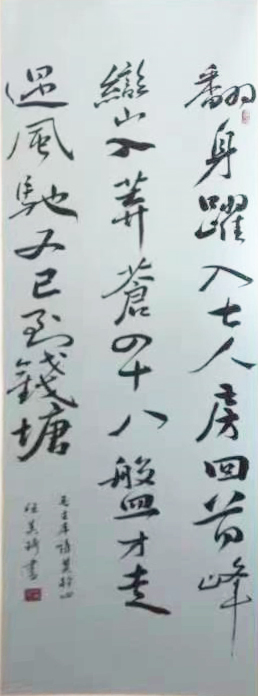 翻身躍入七人房回首峰
巒入莽蒼四十八盤才走
過風馳又已到錢塘
毛主席詩莫干山
書